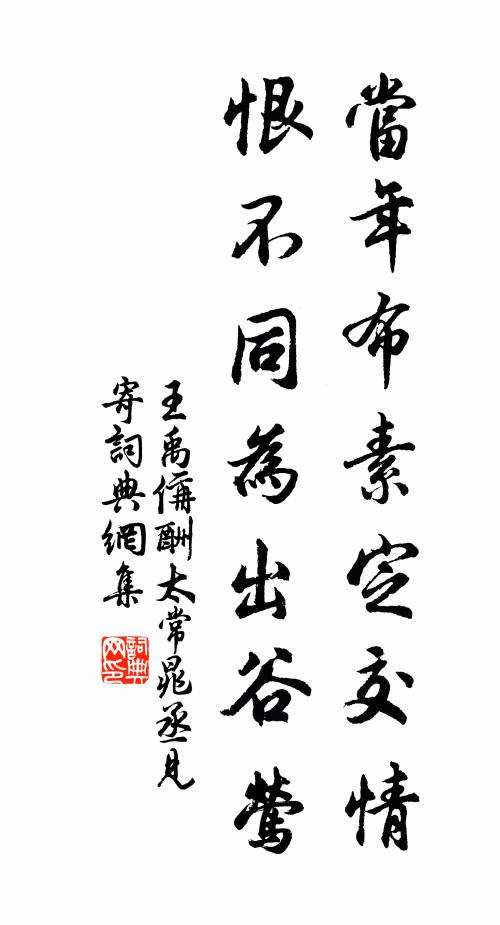 當年布素定交情
恨不同為出谷鶯
王禹偁酬太常晁丞見
寄詞典網集
詞典網印